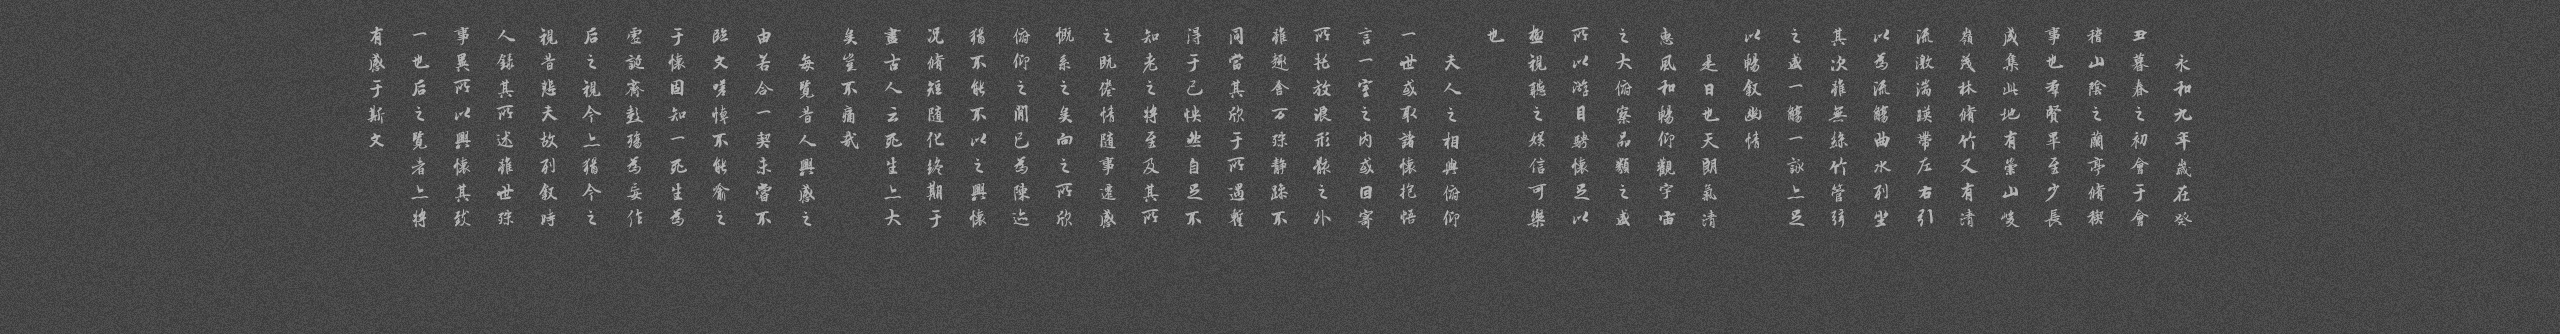 永和九年歲在癸
丑暮春之初會于會
稽山陰之蘭亭脩稧
事也羣賢畢至少長
咸集此地有崇山峻
嶺茂林脩竹又有清
流激湍暎帶左右引
以為流觴曲水列坐
其次雖無絲竹管弦
之盛一觴一詠亦足
以暢叙幽情
是日也天朗氣清
惠風和暢仰觀宇宙
之大俯察品類之盛
所以游目騁懷足以
極視聽之娛信可樂
也
夫人之相與俯仰
一世或取諸懷抱悟
言一室之內或因寄
所託放浪形骸之外
雖趣舍万殊静躁不
同當其欣于所遇暫
得于己怏然自足不
知老之將至及其所
之既惓情隨事遷感
慨系之矣向之所欣
俯仰之間已為陳迹
猶不能不以之興懷
況脩短隨化終期于
盡古人云死生亦大
矣豈不痛哉
每覽昔人興感之
由若合一契未嘗不
臨文嗟悼不能喻之
于懷固知一死生為
虛誕齊彭殤為妄作
后之視今亦猶今之
視昔悲夫故列叙時
人錄其所述雖世殊
事異所以興懷其致
一也后之覽者亦將
有感于斯文